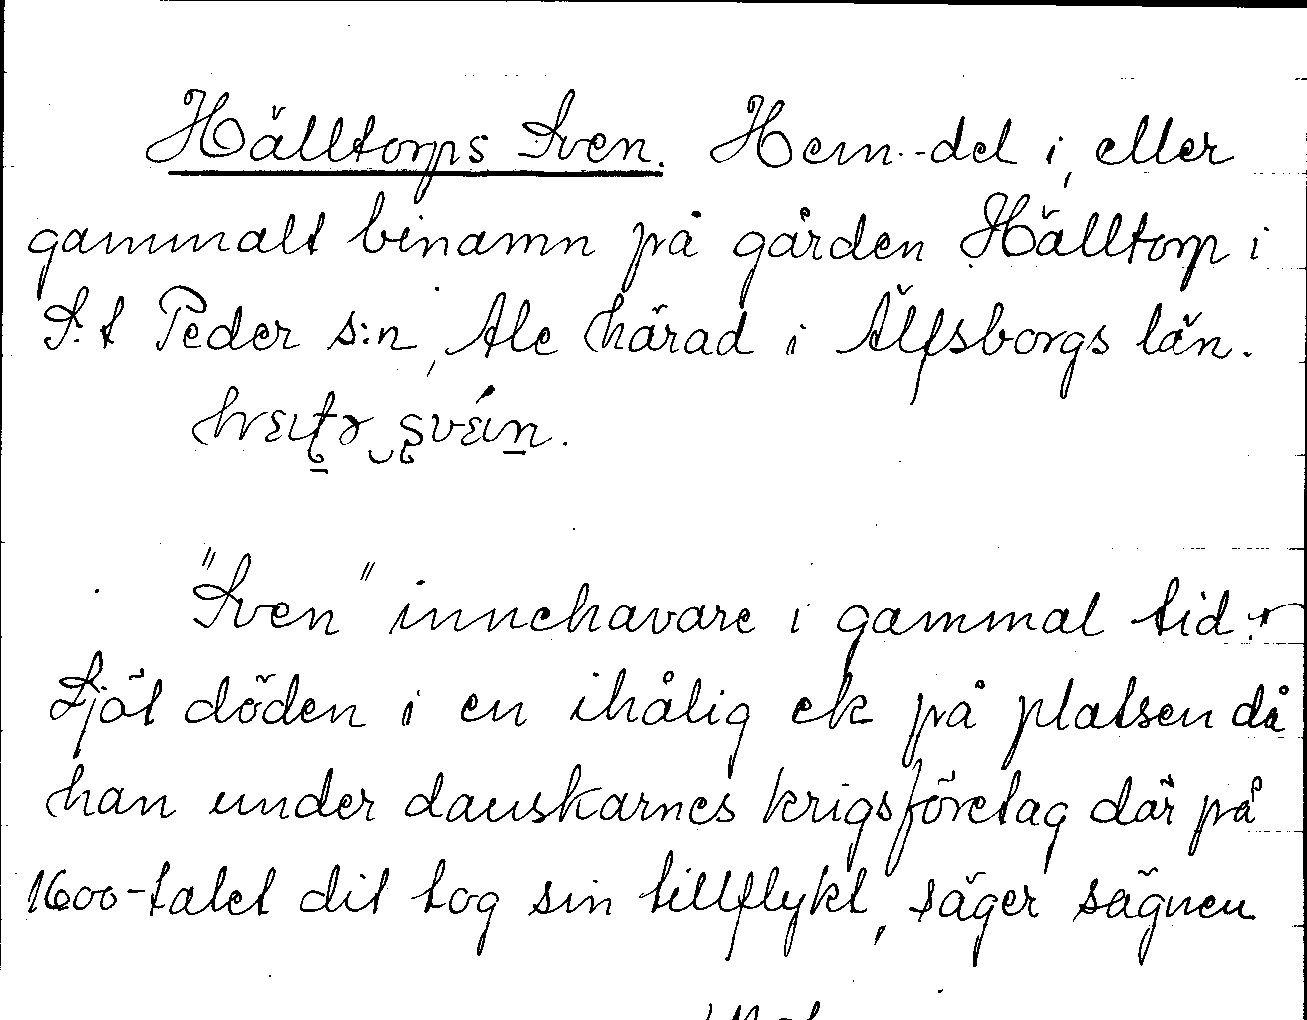 Hälltorps Sven. Hem.-del i, eller
gammalt binamn på gården Hälltorp i
S:t Peder s:n, Ale härad i Älfsborgs län.
"Sven" innehavare i gammal tid.
Ljöt döden i en ihålig ek på platsen då
han under danskarnes krigsföretag där på
1600-talet dit tog sin tillflykt, säger sägnen